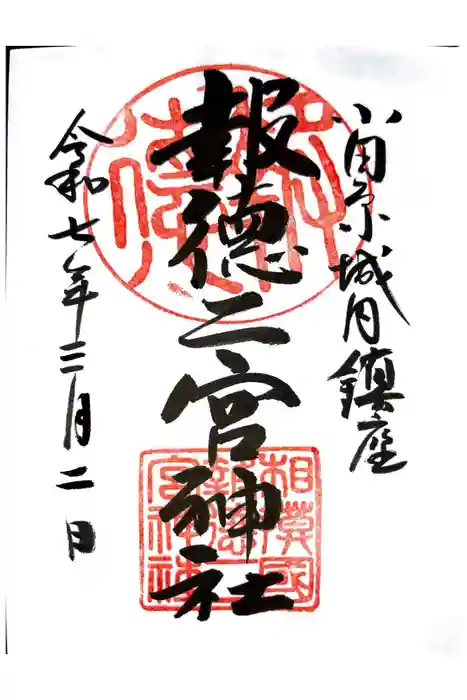 小田原城内鎮座
報徳二宮神社
令和七年三月二日
相模國
報徳二
宮神社